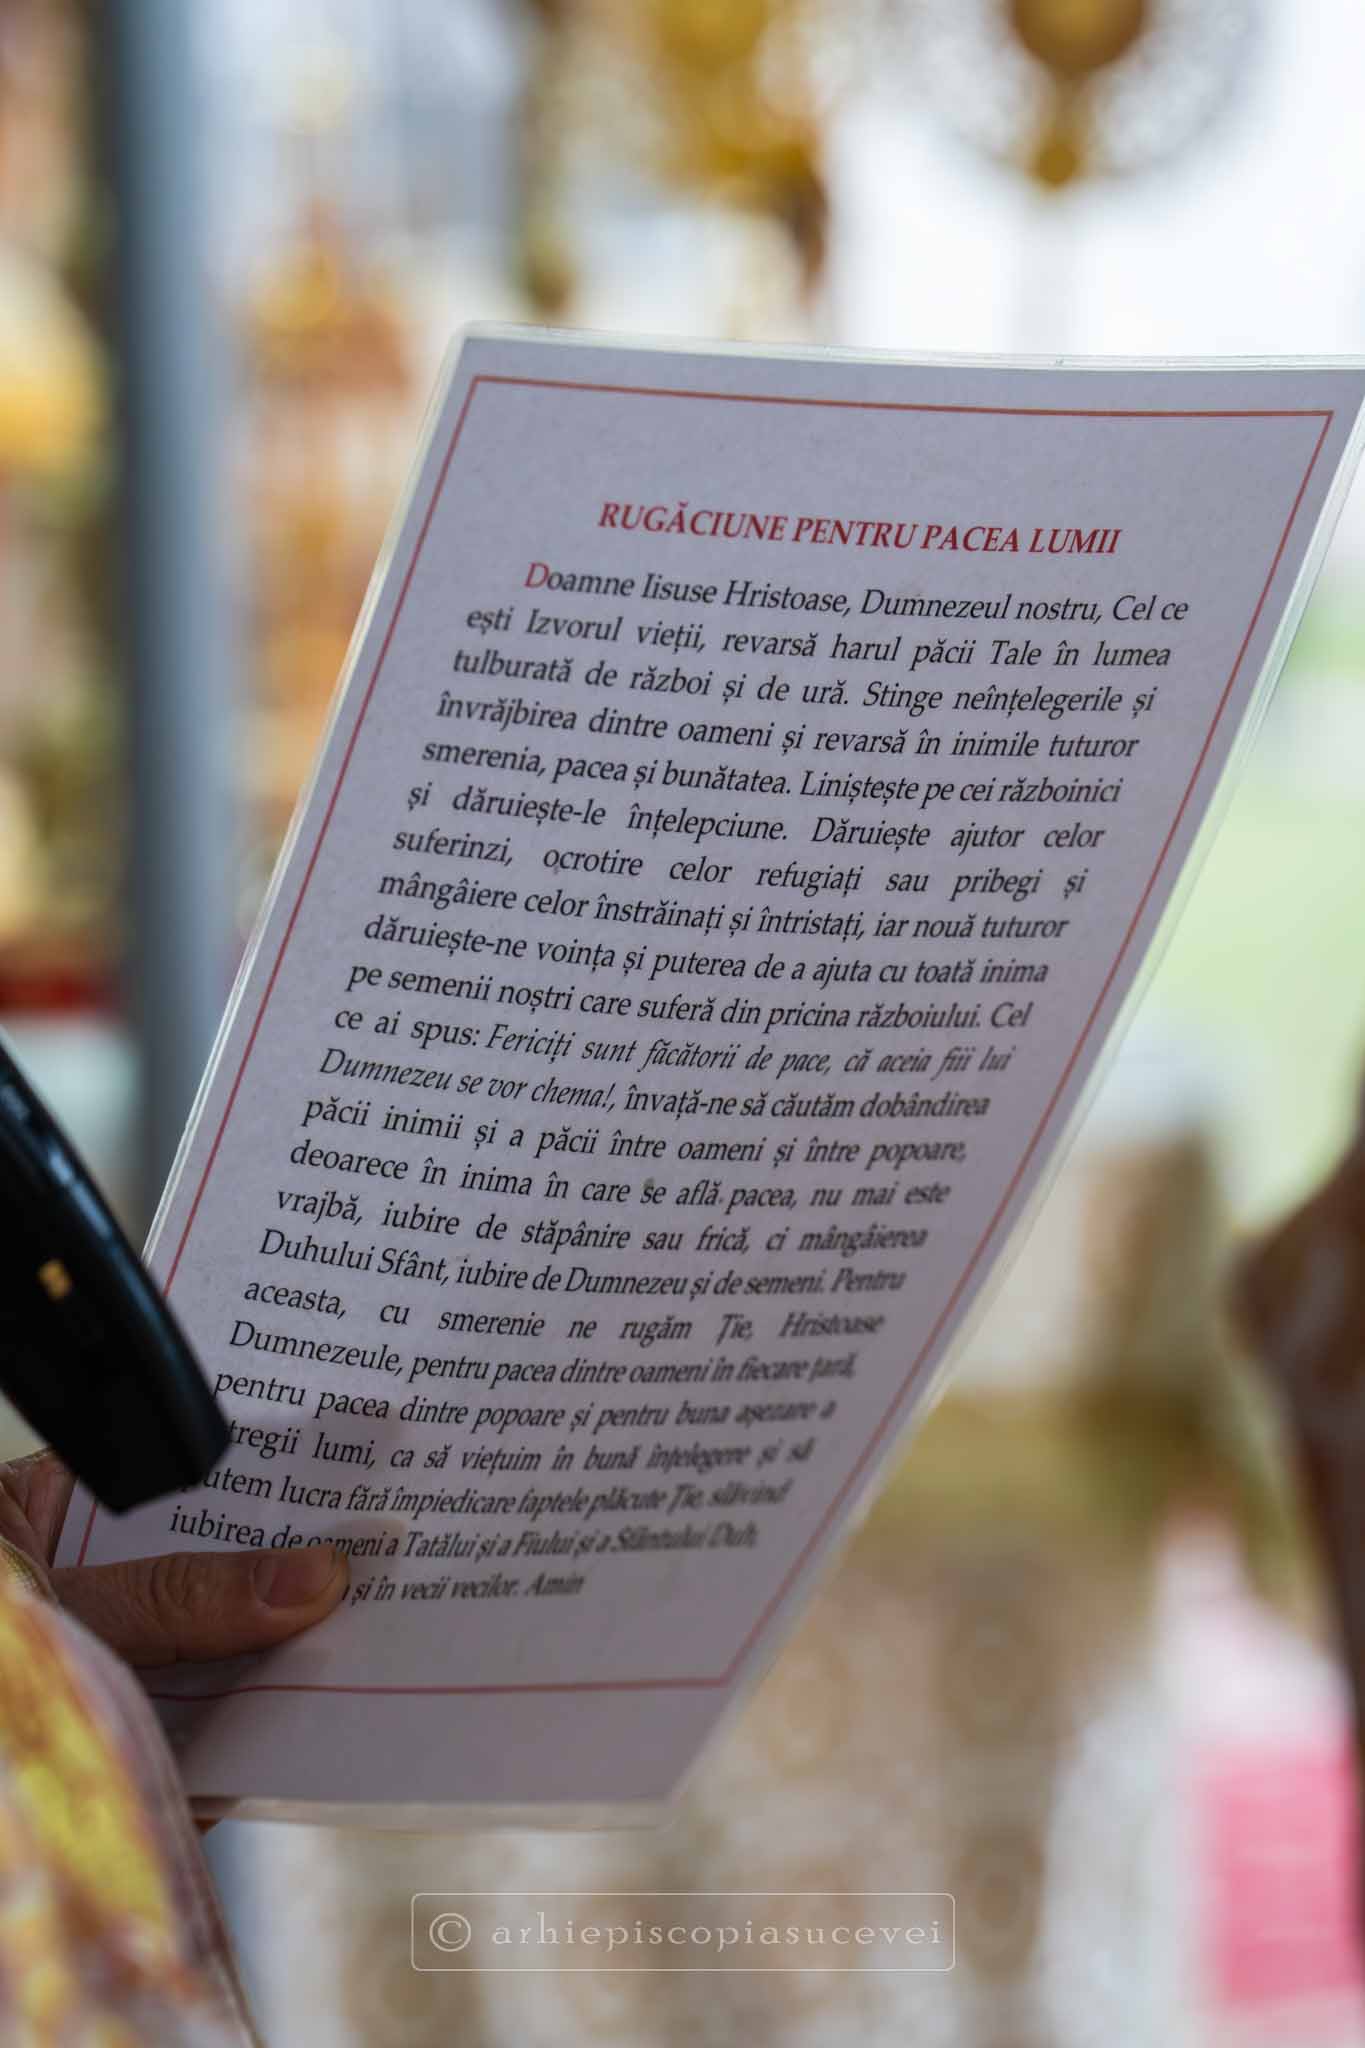 RUGĂCIUNE PENTRU PACEA LUMII
Doamne Iisuse Hristoase, Dumnezeul nostru, Cel ce
ești Izvorul vieții, revarsă harul păcii Tale în lumea
tulburată de război și de ură. Stinge neînțelegerile și
învrăjbirea dintre oameni și revarsă în inimile tuturor
smerenia, pacea și bunătatea. Liniștește pe cei războinici
și dăruiește-le înțelepciune. Dăruiește ajutor celor
suferinzi, ocrotire celor refugiați sau pribegi și
mângâiere celor înstrăinați și întristați, iar nouă tuturor
dăruiește-ne voința și puterea de a ajuta cu toată inima
pe semenii noștri care suferă din pricina războiului. Cel
ce ai spus: Fericiți sunt făcătorii de pace, că aceia fiii lui
Dumnezeu se vor chema!, învață-ne să căutăm dobândirea
păcii inimii și a păcii între oameni și între popoare,
deoarece în inima în care se află pacea, nu mai este
vrajbă, iubire de stăpânire sau frică, ci mângâierea
Duhului Sfânt, iubire de Dumnezeu și de semeni. Pentru
aceasta, cu smerenie ne rugăm Ție, Hristoase
Dumnezeule, pentru pacea dintre oameni în fiecare țară,
pentru pacea dintre popoare și pentru buna așezare a
tregii lumi, ca să viețuim în bună înțelegere și să
putem lucra fără împiedicare faptele plăcute Ție, slăvind
iubirea de oameni a Tatălui și a Fiului și a Sfântului Duh,
și în vecii vecilor. Amin
© arhiepiscopiasucevei